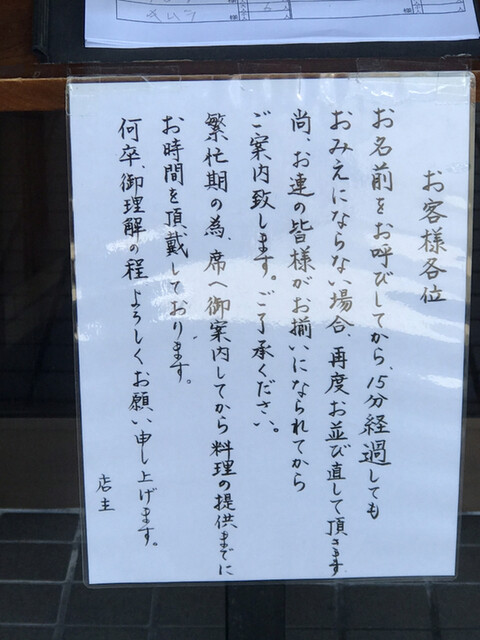 様
人
キムラ
様
人
様
人
お客様各位
お名前をお呼びしてから、15分経過しても
おみえにならない場合、再度お並び直して頂きます
尚、お連の皆様がお揃いになられてから
ご案内致します。ご了承ください。
繁忙期の為、席へ御案内してから料理の提供までに
お時間を頂戴しております。
何卒、御理解の程よろしくお願い申し上げます。
店主